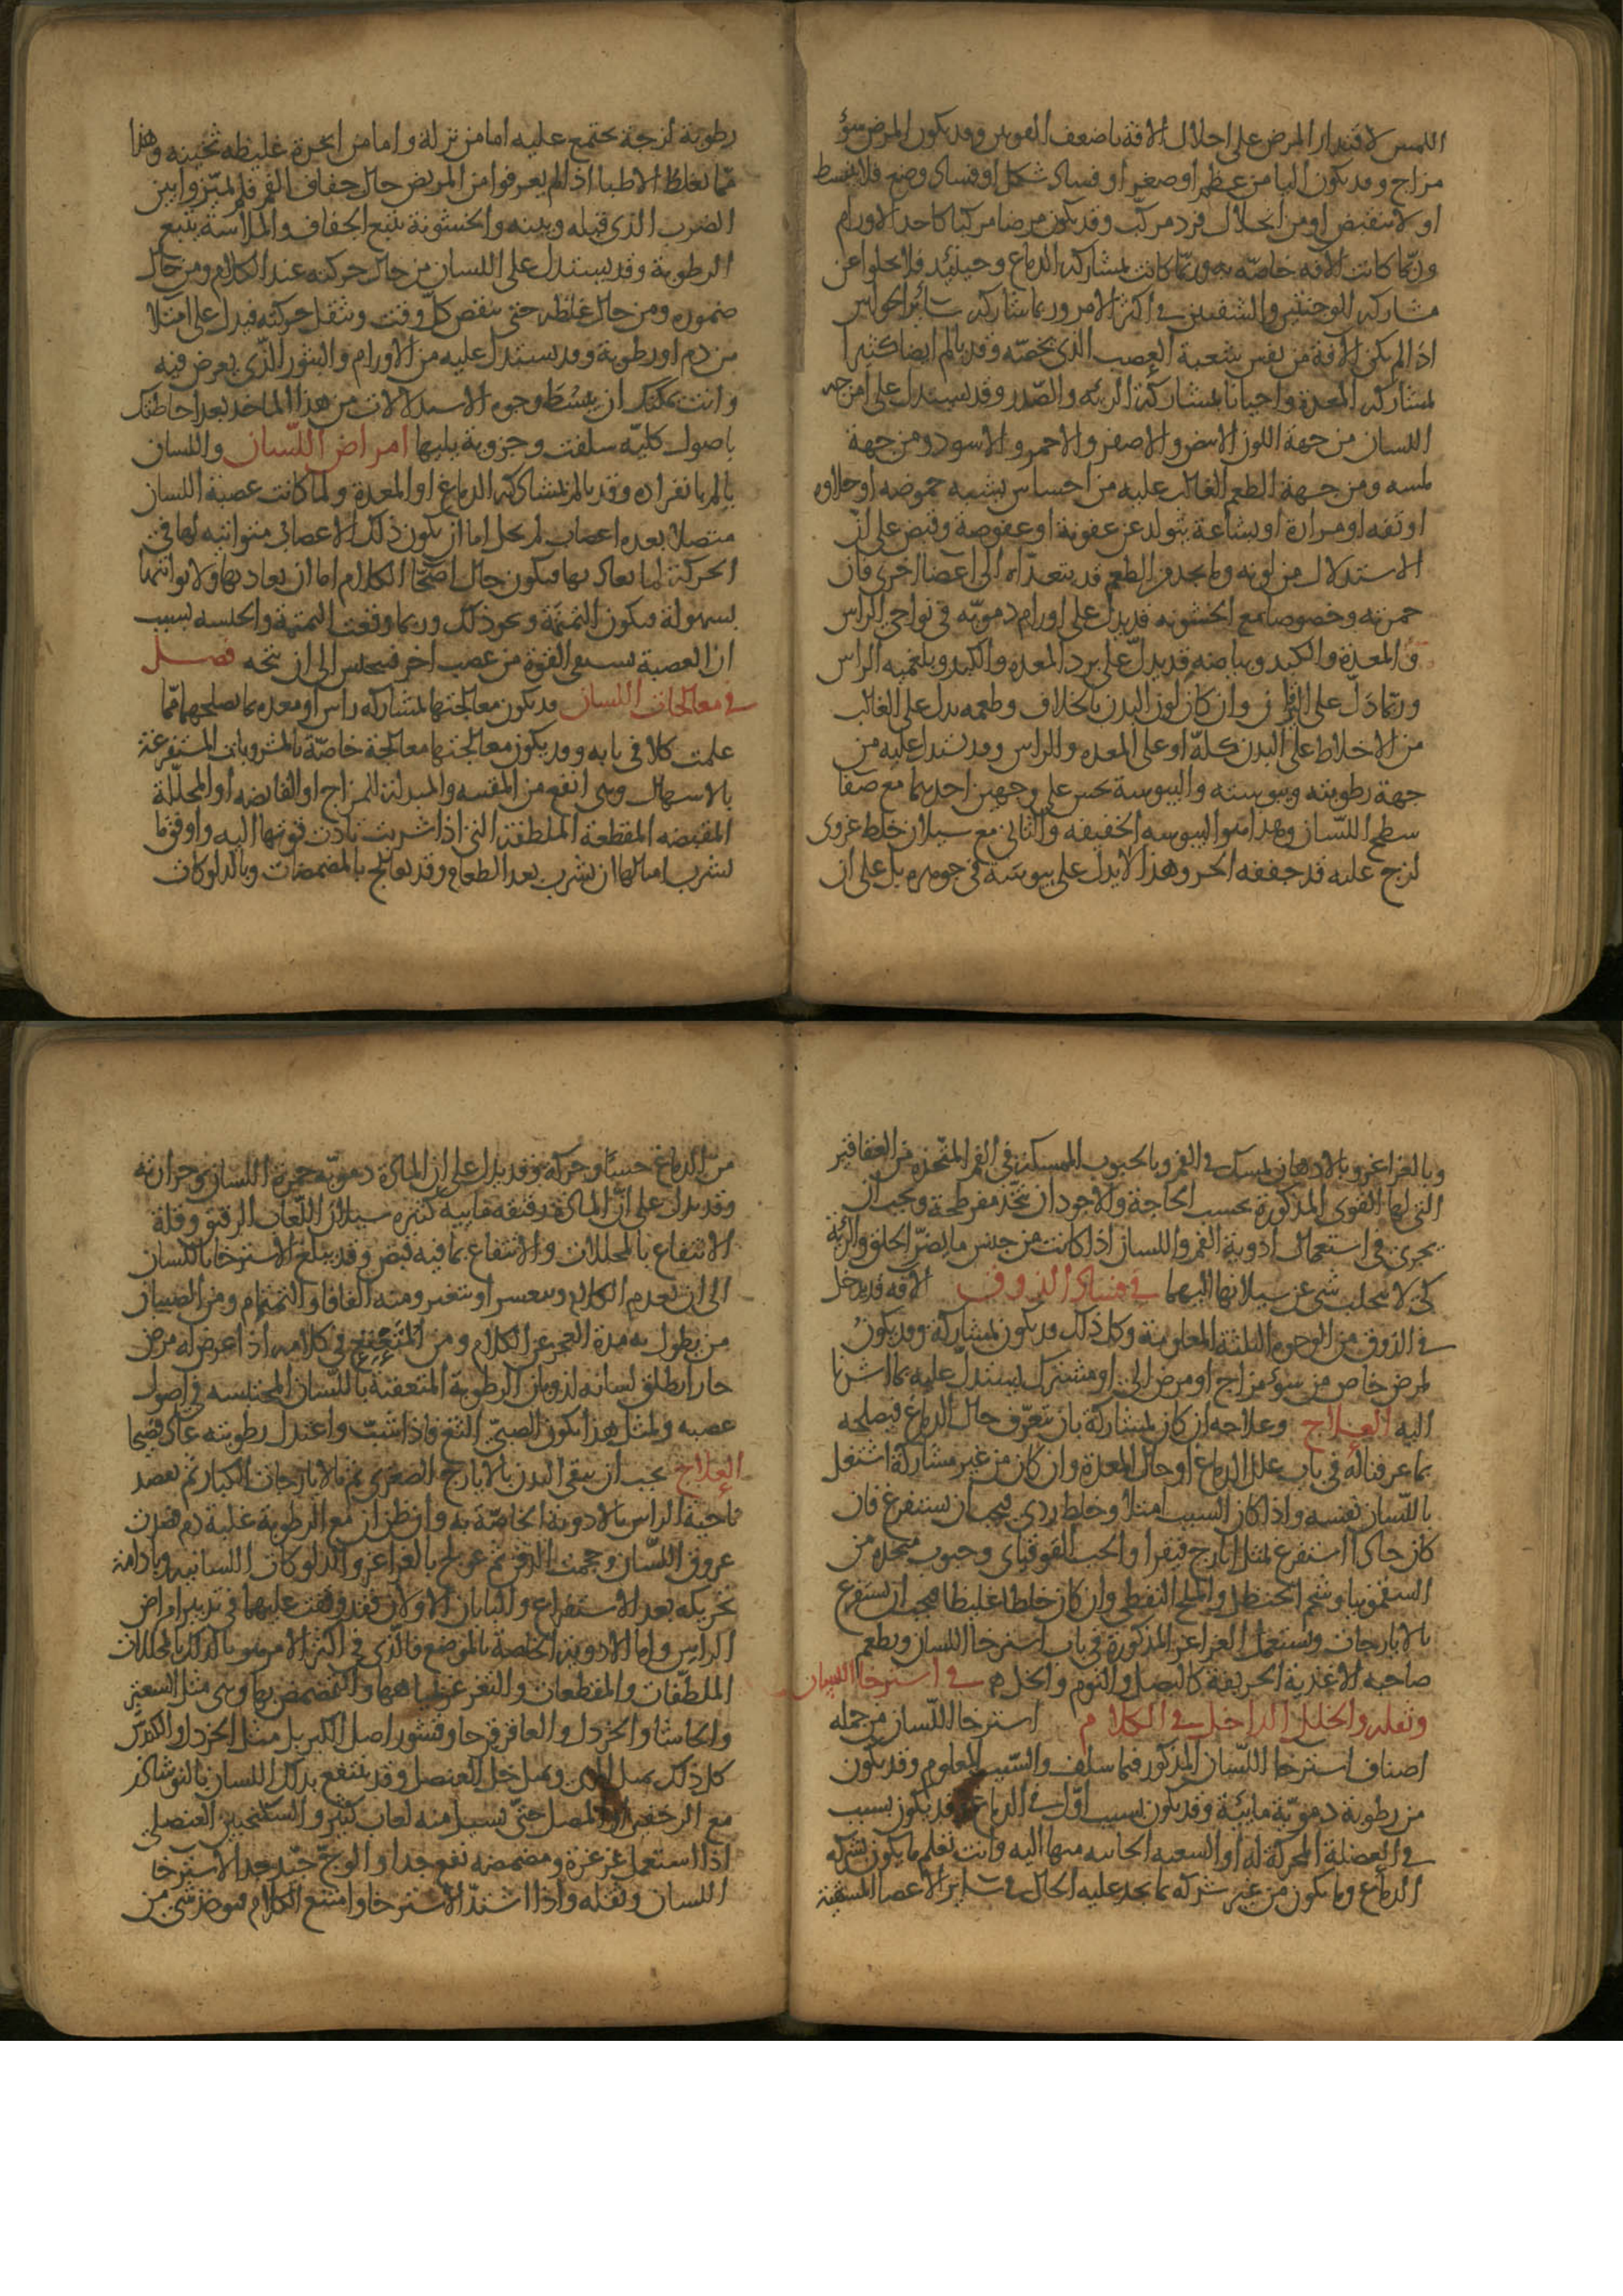 اللمس لاقتدار المرض على احلال الافة باضعف القوتين وقد يكون المرض سوء
مزاج وقد يكون اليا من عظم او صغر او فساد شكل او فساد وضع فلا ينبسط
او لا ينقبض او من انحلال فرد مركب وقد يكون مرضا مركبا كاحد الاورام
وربما كانت الافة خاصة به وربما كانت لمشاركة الدماغ وحينئذ فلا يخلوا عن
مشاركة الوجنتين والشفتين في اكثر الامر وربما شاركه سائر الحواس
اذا لم يكن الافة من نفس شعبة العصب الذي يخصه وقد يالم ايضا كثيرا
لمشاركة المعدة واحيانا بمشاركة الرئة والصدر وقد يستدل على امزجة
اللسان من جهة اللون الابيض والاصفر والاحمر والاسود ومن جهة
لمسه ومن جهة الطعم الغالب عليه من احساس يشبه حموضة او حلاوة
او تفه او مرارة او بشاعة يتولد عن عفونة او عفوصة وقبض على ان
الاستدلال من لونه وما يجد من الطعم قد يتعداه الى اعضا اخرى فان
حمرته وخصوصا مع الخشونة قد يدل على اورام دموية في نواحي الراس
والمعدة والكبد وبياضه قد يدل على برد المعدة والكبد وبلغمية الراس
وربما دل على اليرقان وان كان لون البدن بالخلاف وطعمه يدل على الغالب
من الاخلاط على البدن كله او على المعدة والراس وقد يستدل عليه من
جهة رطوبته ويبوسته واليبوسة يحس على وجهين احدهما مع صفا
سطح اللسان وهذا هو اليبوسة الحقيقية والثاني مع سيلان خلط غروي
لزج عليه قد جففه الحر وهذا لا يدل على يبوسة في جوهره بل على ان
رطوبة لزجة تجتمع عليه اما من نزلة واما من ابخرة غليظة ثخينة وهذا
مما يغلط الاطبا اذا لم يعرفوا من المريض حال جفاف الفم فلم يميزوا بين
الضرب الذي قبله وبينه والخشونة يتبع الجفاف والملاسة يتبع
الرطوبة وقد يستدل على اللسان من حال حركته عند الكلام ومن حال
ضموره ومن حال غلظه حتى ينقض كل وقت ويثقل حركته فيدل على امتلا
من دم او رطوبة وقد يستدل عليه من الاورام والبثور الذي يعرض فيه
وانت يمكنك ان يبسط وجوه الاستدلالات من هذا الماخذ بعد احاطتك
باصول كلية سلفت وجزوية يليها امراض اللسان واللسان
يالم بانفراده وقد يالم لمشاركة الدماغ او المعدة ولما كانت عصبة اللسان
متصلا بعدة اعصاب لم يخل اما ان يكون ذلك الاعصاب متواتية لها في
الحركة لما يعاد بها فيكون حال اصحا الكلام اما ان يعاد بها ولا يواتيها
بسهولة فيكون التمتمة ونحو ذلك وربما وقعت التمتمة والحبسة بسبب
ان العصبة يستقي القوة من عصب اخر فيحبس الى ان يتجه فصل
في معالجات اللسان قد يكون معالجتها لمشاركة راس او معدة بما يصلحهما مما
علمت كلا في بابه وقد يكون معالجتها معالجة خاصة بالمشروبات المستفرغة
بالاسهال وهي انفع من المقيية والمبدلة للمزاج او القابضة او المحللة
المقبضة المقطعة الملطفة التي اذا شربت تادت قوتها اليه واوفق ما
يشرب امثالها ان يشرب بعد الطعام وقد يعالج بالمضمضات وبالدلوكات
وبالغراغر وبالادهان يمسك في الفم وبالحبوب الممسكة في الفم المتخذة من العقاقير
التي لها القوى المذكورة بحسب الحاجة والاجود ان يتخذ مفرطحة ويجب ان
يحترز في استعمال ادوية الفم واللسان اذا كانت من جنس ما يضر الحلق والرئة
كي لا يتحلب شي عن سيلانها اليهما في فساد الذوق الافة قد يدخل
في الذوق من الوجوه الثلثة المعلومة وكل ذلك قد يكون لمشاركة وقد يكون
لمرض خاص من سوء مزاج او مرض الي او مشترك يستدل عليه بما اشرنا
اليه العلاج وعلاجه ان كان لمشاركة بان يتعرف حال الدماغ فيصلحه
بما عرفناك في باب علل الدماغ او حال المعدة وان كان من غير مشاركة اشتغل
باللسان نفسه واذا كان السبب امتلا وخلط ردي فيجب ان يستفرغ فان
كان حادا استفرغ بمثل ايارج فيقرا والحب القوقاي وحبوب متخذة من
السقمونيا وشحم الحنظل والملح النفطي وان كان خلطا غليظا فيجب ان يستفرغ
بالايارجات ويستعمل الغراغر المذكورة في باب استرخا اللسان ويطعم
صاحبه الاغذية الحريفة كالبصل والثوم والخل في استرخا اللسان
وثقله والخلل الداخل في الكلام استرخا اللسان من جملة
اصناف استرخا اللسان المذكور فيما سلف والسبب المعلوم وقد يكون
من رطوبة دموية مايية وقد يكون لسبب اول في الدماغ وقد يكون بسبب
في العضلة المحركة له او الشعبة الجائية منها اليه وانت تعلم ما يكون بشركة
الدماغ وما يكون من غير شركة بما تجد عليه الحال في سائر الاعصا المستقية
من الدماغ حسا وحركة وقد يدل على ان المادة دموية حمرة اللسان وحرارته
وقد يدل على ان المادة رقيقة مايية كثرة سيلان اللعاب الرقيق وقلة
الانتفاع بالمحللات والانتفاع بما فيه قبض وقد يبلغ الاسترخا باللسان
الى ان يعدم الكلام ويعسر او يتغير ومنه الفافا والتمتام ومن الصبيان
من يطول به مدة العجز عن الكلام ومن المتعتع في كلامه اذا عرض له مرض
حار انطلق لسانه لذوبان الرطوبة المتعقبة باللسان المحتبسة في اصول
عصبه ولمثل هذا يكون الصبي الثغ فاذا شب واعتدل رطوبته عاد فصيحا
العلاج يجب ان ينقى البدن بالايارج الصغرى ثم بالايارجات الكبار ثم يقصد
ناحية الراس بالادوية الخاصة به وان ظن ان مع الرطوبة غلبة دم فصدت
عروق اللسان وحجمت الذقن ثم عولج بالغراغر والدلوكات اللسانية وبادامة
تحريكه بعد الاستفراغ والبابان الاولان فقد وقفت عليهما في تدبير امراض
الراس واما الادوية الخاصة بالموضع فالذي في اكثر الامر هو بالدلك بالمحللات
الملطفات والمقطعات والتغرغر بمياهها والتمضمض بها وهي مثل السعتر
والحاشا والخردل والعاقرقرحا وقشور اصل الكبر بل مثل الخردل والكندس
كل ذلك بمثل المري وبمثل خل العنصل وقد ينتفع بدلك اللسان بالنوشادر
مع الرخبين او المصل حتى يسيل منه لعاب كثير والسكنجبين العنصلي
اذا استعمل غرغرة ومضمضة نفع جدا والوج جيد جدا لاسترخا
اللسان وثقله واذا اشتد الاسترخا وامتنع الكلام فيوخذ شي من